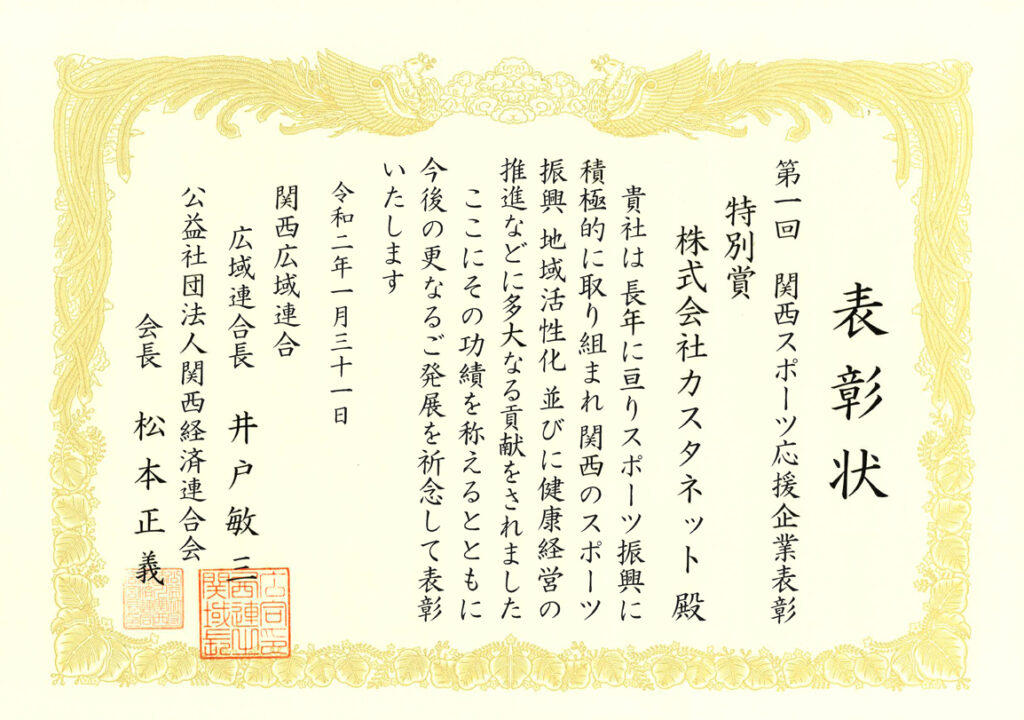 表彰状
第一回 関西スポーツ応援企業表彰
特別賞
株式会社カスタネット 殿
貴社は長年に亘りスポーツ振興に
積極的に取り組まれ関西のスポーツ
振興、地域活性化、並びに健康経営の
推進などに多大なる貢献をされました
ここにその功績を称えるとともに
今後の更なるご発展を祈念して表彰
いたします
令和二年一月三十一日
関西広域連合
広域連合長 井戸敏三
公益社団法人関西経済連合会
会長 松本正義